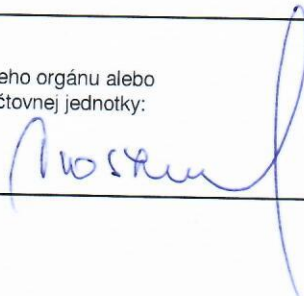 eho orgánu alebo
čtovnej jednotky: